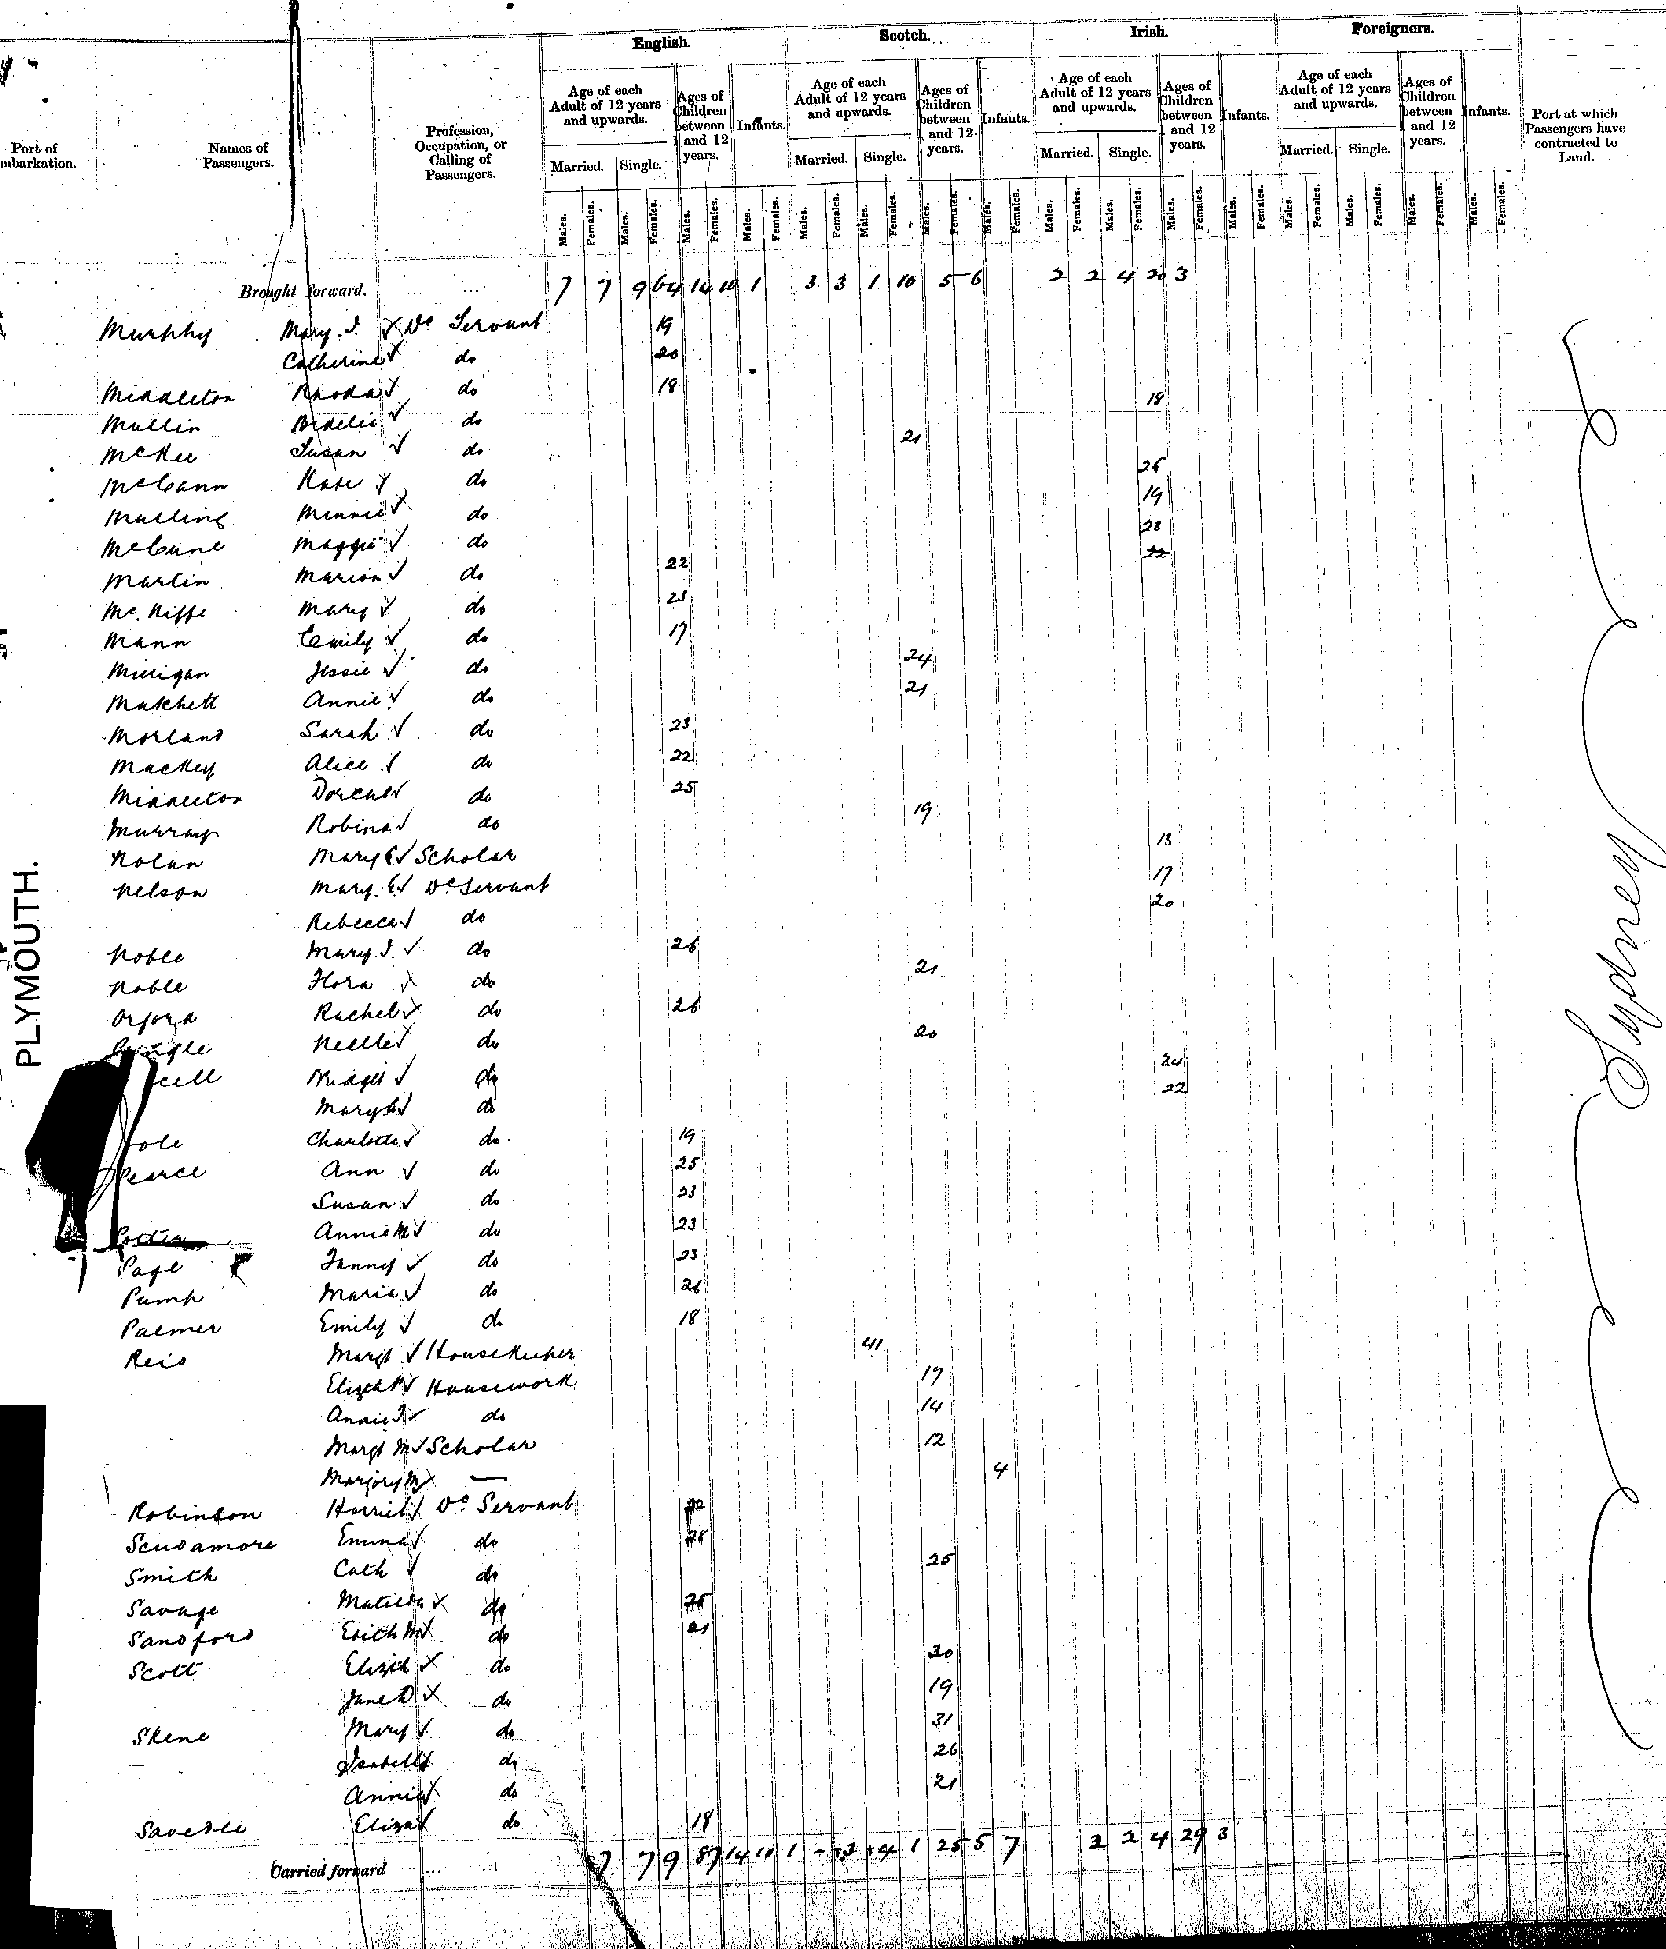 English. Scotch. Irish. Foreigners.
Port of Embarkation. Names of Passengers. Profession, Occupation, or Calling of Passengers. Age of each Adult of 12 years and upwards. Ages of Children between and 12 years. Infants. Age of each Adult of 12 years and upwards. Ages of Children between and 12 years. Infants. Age of each Adult of 12 years and upwards. Ages of Children between and 12 years. Infants. Age of each Adult of 12 years and upwards. Ages of Children between and 12 years. Infants. Port at which Passengers have contracted to Land.
Married. Single. Married. Single. Married. Single. Married. Single.
Males. Females. Males. Females. Males. Females. Males. Females. Males. Females. Males. Females. Males. Females. Males. Females. Males. Females. Males. Females. Males. Females. Males. Females. Males. Females. Males. Females. Males. Females. Males. Females.
Brought forward. ... 7 7 9 64 14 10 1 3 3 1 10 5 6 2 2 4 20 3
Murphy Mary J. Do Servant 19
Catherine do 20
Middleton Rhoda do 18
Mullin Bedelia do 18
McKee Susan do 21
McCann Kate do 25
Mulling Minnie do 19
McCune Maggie do 23
Martin Marion do 22
Mc. Niffe Mary do 23
Mann Emily do 17
Milligan Jessie do 24
Matchett Annie do 21
Morland Sarah do 23
Mackey Alice do 22
Middleton Dorcas do 25
Murray Robina do 19
Nolan Mary E Scholar 13
Nelson Mary E Do Servant 17
Rebecca do 20
Noble Mary J. do 26
Noble Flora do 21
Orford Rachel do 26
Nellie do 20
Bridget do 24
Mary do 22
Charlotte do 19
Pearce Ann do 25
Susan do 23
Annie M do 23
Page Fanny do 23
Pump Maria do 26
Palmer Emily do 18
Reid Margt Housekeeper 41
Elizth Housework 17
Annie J do 14
Margt M Scholar 12
Marjory M — 4
Robinson Harriet Do Servant 22
Scudamore Emma do 28
Smith Cath do 25
Savage Matilda do 25
Sandford Edith M do 21
Scott Elizth do 20
Jane D do 19
Skene Mary do 31
Isabella do 26
Annie do 21
Eliza do 18
Carried forward ... 7 7 9 87 14 10 1 - 3 4 1 25 5 7 2 2 4 29 3
PLYMOUTH.
Sydney